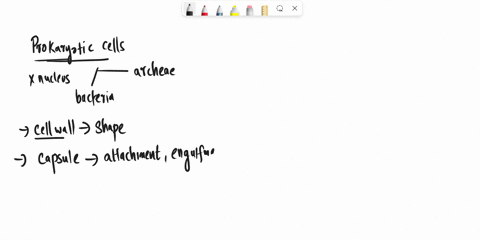 Prokaryotic cells
x nucleus
archeae
bacteria
→ cell wall → shape
→ capsule → attachment,